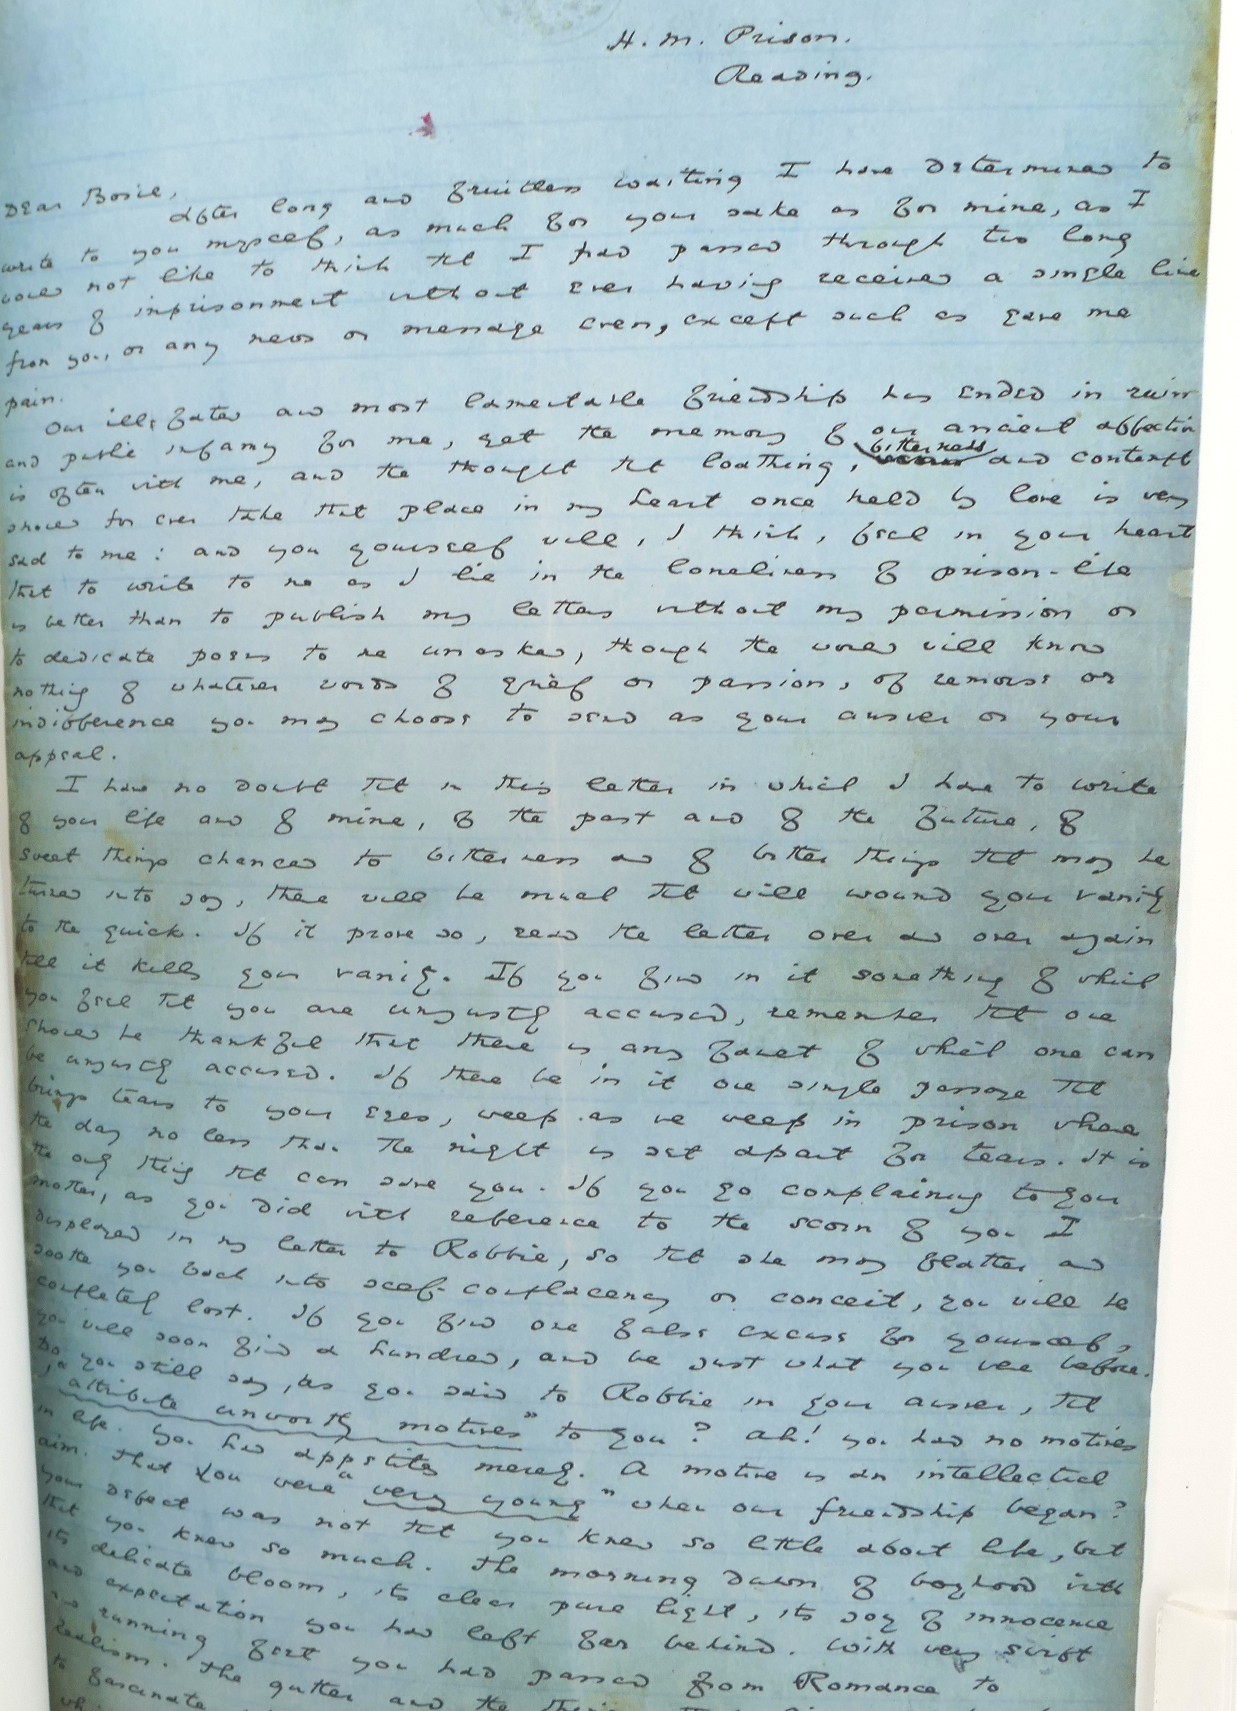 H. M. Prison.
Reading.
Dear Bosie,
After long and fruitless waiting I have determined to
write to you myself, as much for your sake as for mine, as I
would not like to think that I had passed through two long
years of imprisonment without ever having received a single line
from you, or any news or message even, except such as gave me
pain.
Our ill-fated and most lamentable friendship has ended in ruin
and public infamy for me, yet the memory of our ancient affection
is often with me, and the thought that loathing, bitterness and contempt
should for ever take that place in my heart once held by love is very
sad to me: and you yourself will, I think, feel in your heart
that to write to me as I lie in the loneliness of prison-life
is better than to publish my letters without my permission or
to dedicate poems to me unasked, though the world will know
nothing of whatever words of grief or passion, of remorse or
indifference you may choose to send as your answer or your
appeal.
I have no doubt that in this letter in which I have to write
of your life and of mine, of the past and of the future, of
sweet things changed to bitterness and of bitter things that may be
turned into joy, there will be much that will wound your vanity
to the quick. If it prove so, read the letter over and over again
till it kills your vanity. If you find in it something of which
you feel that you are unjustly accused, remember that one
should be thankful that there is any fault of which one can
be unjustly accused. If there be in it one single passage that
brings tears to your eyes, weep as we weep in prison where
the day no less than the night is set apart for tears. It is
the only thing that can save you. If you go complaining to your
mother, as you did with reference to the scorn of you I
displayed in my letter to Robbie, so that she may flatter and
soothe you back into self-complacency or conceit, you will be
completely lost. If you find one false excuse for yourself,
you will soon find a hundred, and be just what you were before.
Do you still say, as you said to Robbie in your answer, that
I "attribute unworthy motives" to you? Ah! you had no motives
in life. You had appetites merely. A motive is an intellectual
aim. That you were "very young" when our friendship began?
Your defect was not that you knew so little about life, but
that you knew so much. The morning dawn of boyhood with
its delicate bloom, its clear pure light, its joy of innocence
and expectation you had left far behind. With very swift
and running feet you had passed from Romance to
Realism. The gutter and the things
to fascinate